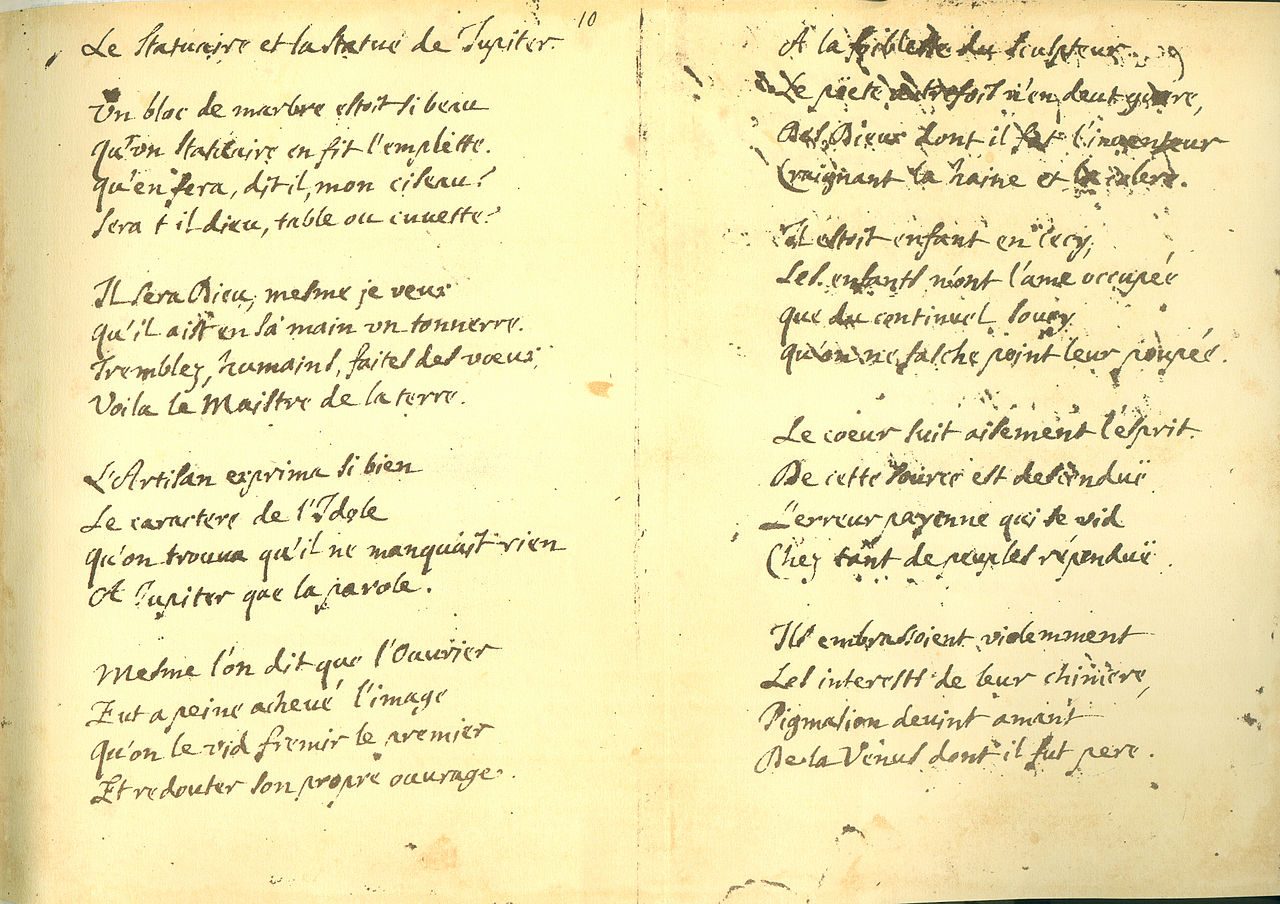 10
Le Statuaire et la statue de Jupiter.
Un bloc de marbre estoit si beau
qu'un Statuaire en fit l'emplette.
qu'en fera, dit il, mon ciseau?
Sera t il dieu, table ou cuvette?
Il sera Dieu, mesme je veux
qu'il aist en sa main un tonnerre.
Tremblez, humains, faites des vœux;
Voila le Maistre de la terre.
L'Artisan exprima si bien
Le caractere de l'Idole
qu'on trouva qu'il ne manquast rien
A Jupiter que la parole.
Mesme l'on dit que l'Ouvrier
Eut a peine achevé l'image
Qu'on le vid fremir le premier
Et redouter son propre ouvrage.
A la foiblesse du sculpteur
Le poëte autrefois n'en deut guere,
Des Dieux dont il fut l'inventeur
Craignant la haine et la colere.
Il estoit enfant en cecy,
Les enfants n'ont l'ame occupée
que du continuel soucy
qu'on ne fasche point leur poupée.
Le coeur suit aisément l'esprit.
De cette source est descenduë
L'erreur payenne qui se vid
Chez tant de peuples répenduë.
Ils embrassoient videmment
Les interests de leur chimere,
Pigmalion devint amant
De la Venus dont il fut pere.